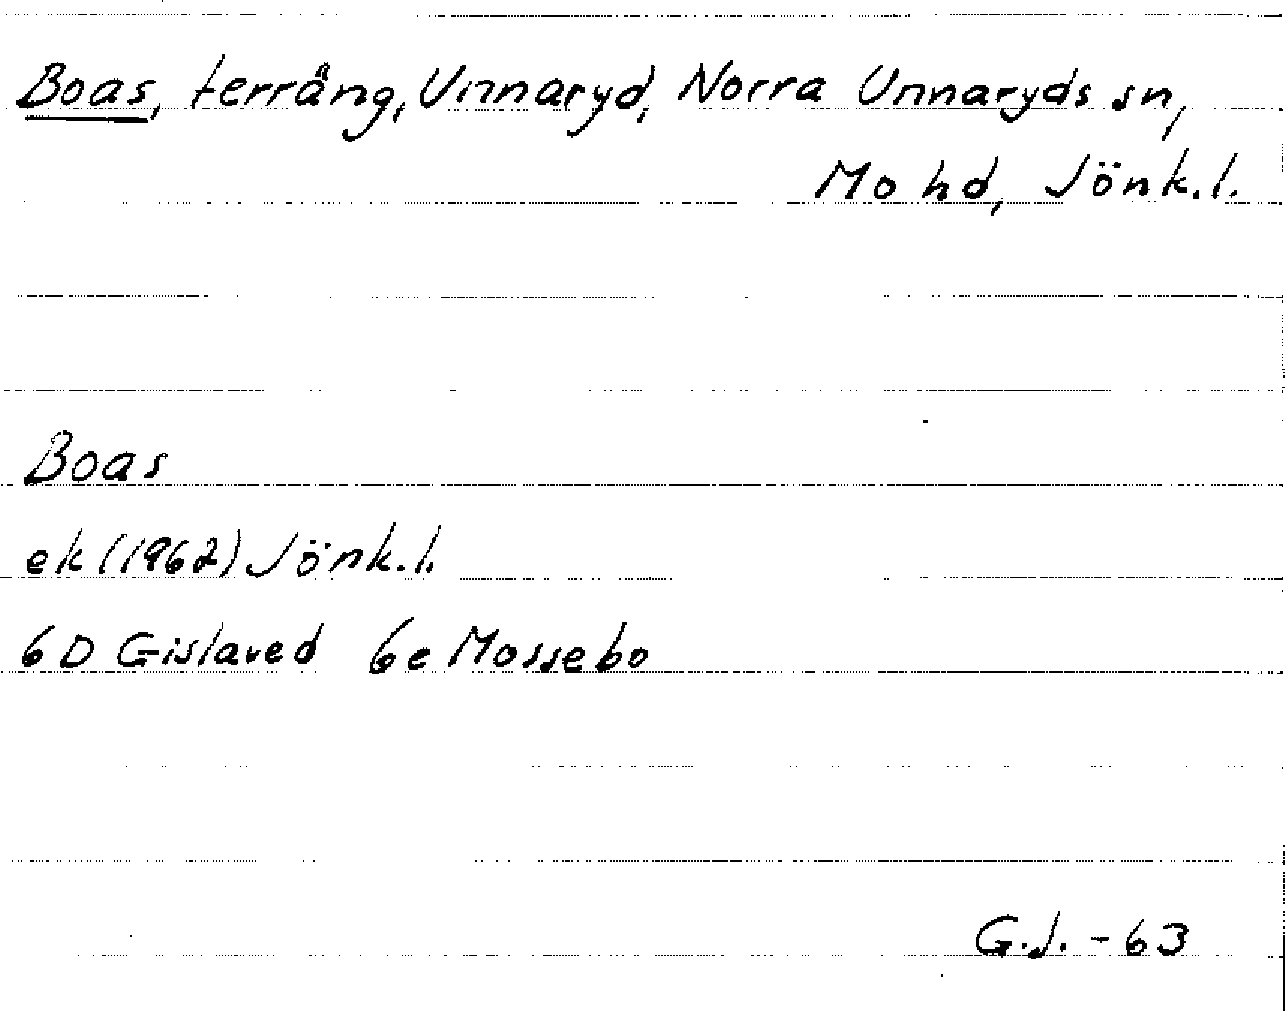 Boas, terräng, Unnaryd, Norra Unnaryds sn,
Mo hd, Jönk.l.
Boas
ek (1962) Jönk.l.
6D Gislaved 6e Mossebo
G.J. - 63